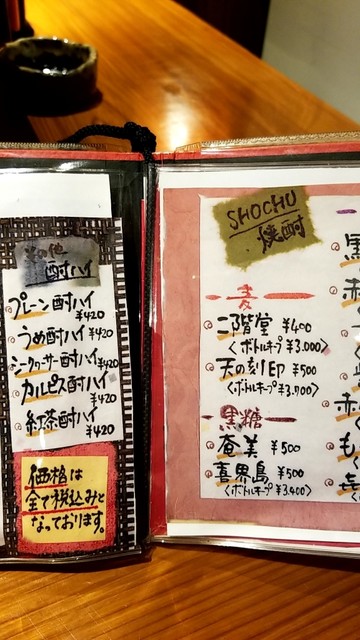 その他
酎ハイ
プレーン酎ハイ ¥420
うめ酎ハイ ¥420
シークヮーサー酎ハイ ¥420
カルピス酎ハイ ¥420
紅茶酎ハイ ¥420
価格は
全て税込みと
なっております。
SHOCHU
焼酎
麦
二階堂 ¥400
<ボトルキープ ¥3.000>
天の刻印 ¥500
<ボトルキープ ¥3.700>
黒糖
奄美 ¥500
喜界島 ¥500
<ボトルキープ ¥3.400>
黒
赤
赤
も